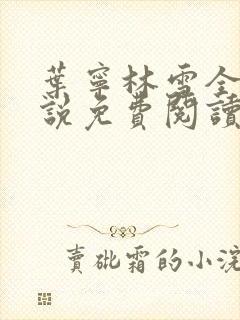 葉寧林雪全
說免費閱讀
賣砒霜的小浣